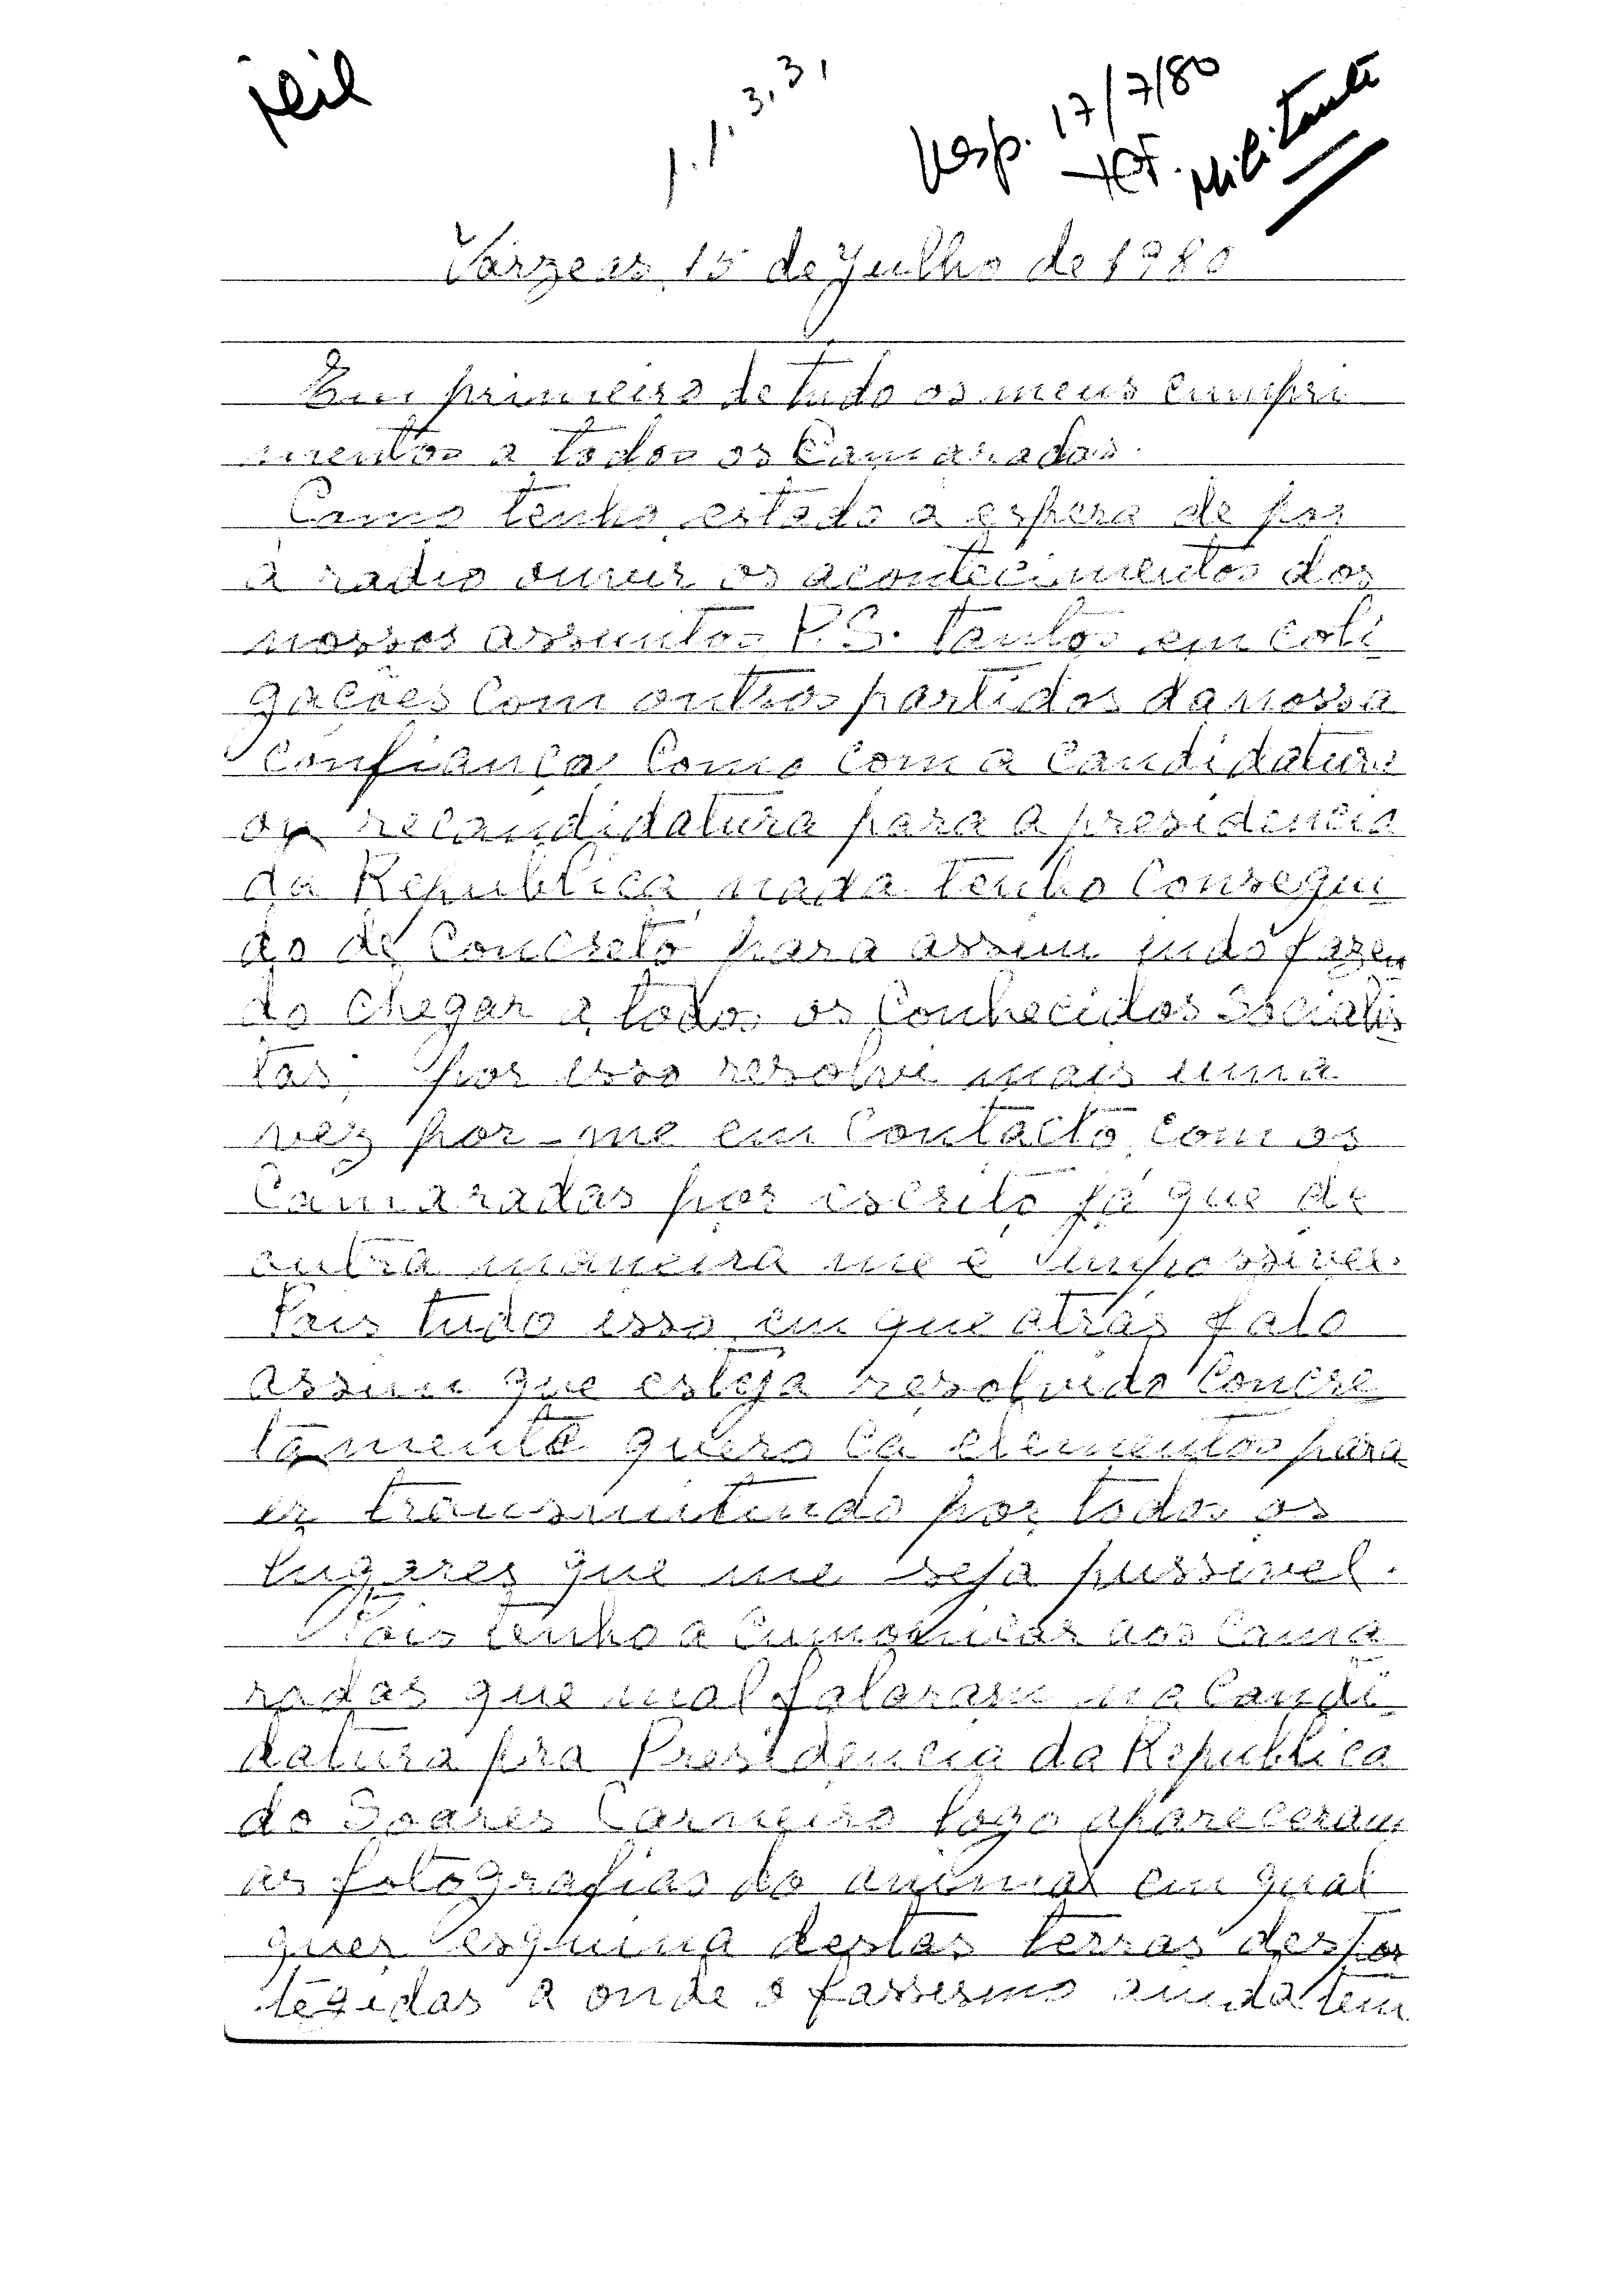 1.1.3.3,
Resp. 17/7/80
Militante
Varzeas 15 de Julho de 1980
Em primeiro de tudo os meus cumpri
mentos a todos os Camaradas.
Como tenho estado a espera de por
a radio ouvir os acontecimentos dos
nossos assuntos P.S. tantos em coli
gacões com outros partidos da nossa
confiança Como com a candidatura
ou recandidatura para a presidencia
da Republica nada tenho consegui
do de concreto para assim indo fazen
do chegar a todos os conhecidos Socialis
tas; por isso resolvi mais uma
vez por-me em contacto com os
Camaradas por escrito já que de
outra maneira me é impossivel.
Pois tudo isso em que atrás falo
assim que esteja resolvido concre
tamente quero ca elementos para
ir transmitindo por todos os
lugares que me seja pussivel.
Pois tenho a cumonicar aos Cama
radas que mal falaram na Candi
datura pra Presidencia da Republica
do Soares Carneiro logo apareceram
as fotografias do animal em qual
quer esquina destas terras despor
tegidas a onde o fassismo ainda tem